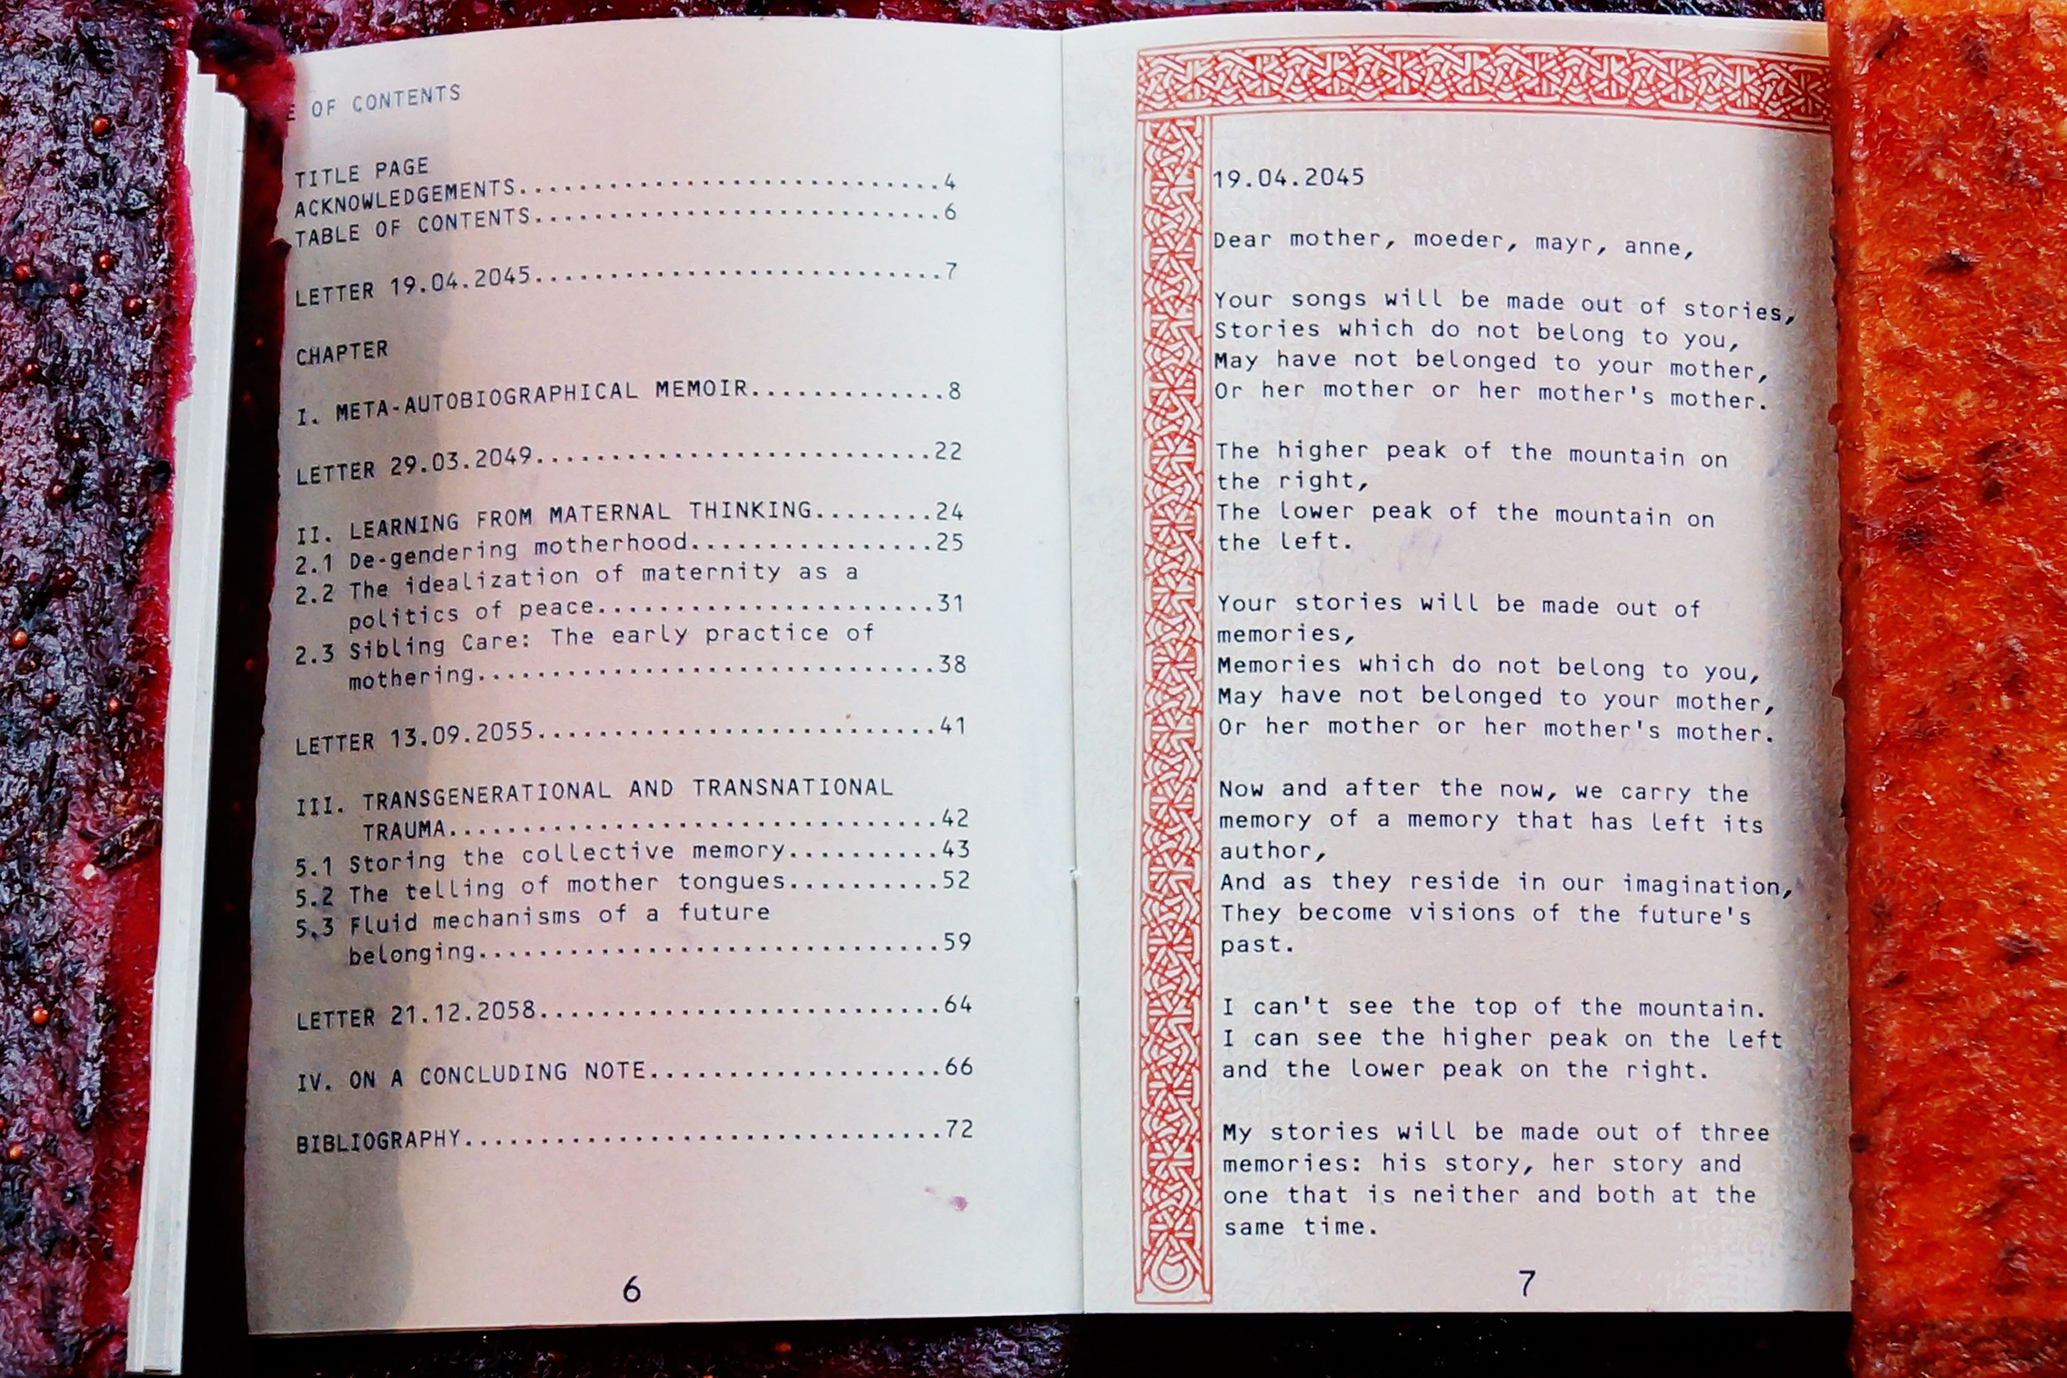 OF CONTENTS
TITLE PAGE
ACKNOWLEDGEMENTS............................4
TABLE OF CONTENTS...........................6
LETTER 19.04.2045...........................7
CHAPTER
I. META-AUTOBIOGRAPHICAL MEMOIR.............8
LETTER 29.03.2049..........................22
II. LEARNING FROM MATERNAL THINKING........24
2.1 De-gendering motherhood................25
2.2 The idealization of maternity as a
politics of peace......................31
2.3 Sibling Care: The early practice of
mothering..............................38
LETTER 13.09.2055..........................41
III. TRANSGENERATIONAL AND TRANSNATIONAL
TRAUMA................................42
5.1 Storing the collective memory..........43
5.2 The telling of mother tongues..........52
5.3 Fluid mechanisms of a future
belonging..............................59
LETTER 21.12.2058..........................64
IV. ON A CONCLUDING NOTE...................66
BIBLIOGRAPHY...............................72
6
19.04.2045
Dear mother, moeder, mayr, anne,
Your songs will be made out of stories,
Stories which do not belong to you,
May have not belonged to your mother,
Or her mother or her mother's mother.
The higher peak of the mountain on
the right,
The lower peak of the mountain on
the left.
Your stories will be made out of
memories,
Memories which do not belong to you,
May have not belonged to your mother,
Or her mother or her mother's mother.
Now and after the now, we carry the
memory of a memory that has left its
author,
And as they reside in our imagination,
They become visions of the future's
past.
I can't see the top of the mountain.
I can see the higher peak on the left
and the lower peak on the right.
My stories will be made out of three
memories: his story, her story and
one that is neither and both at the
same time.
7